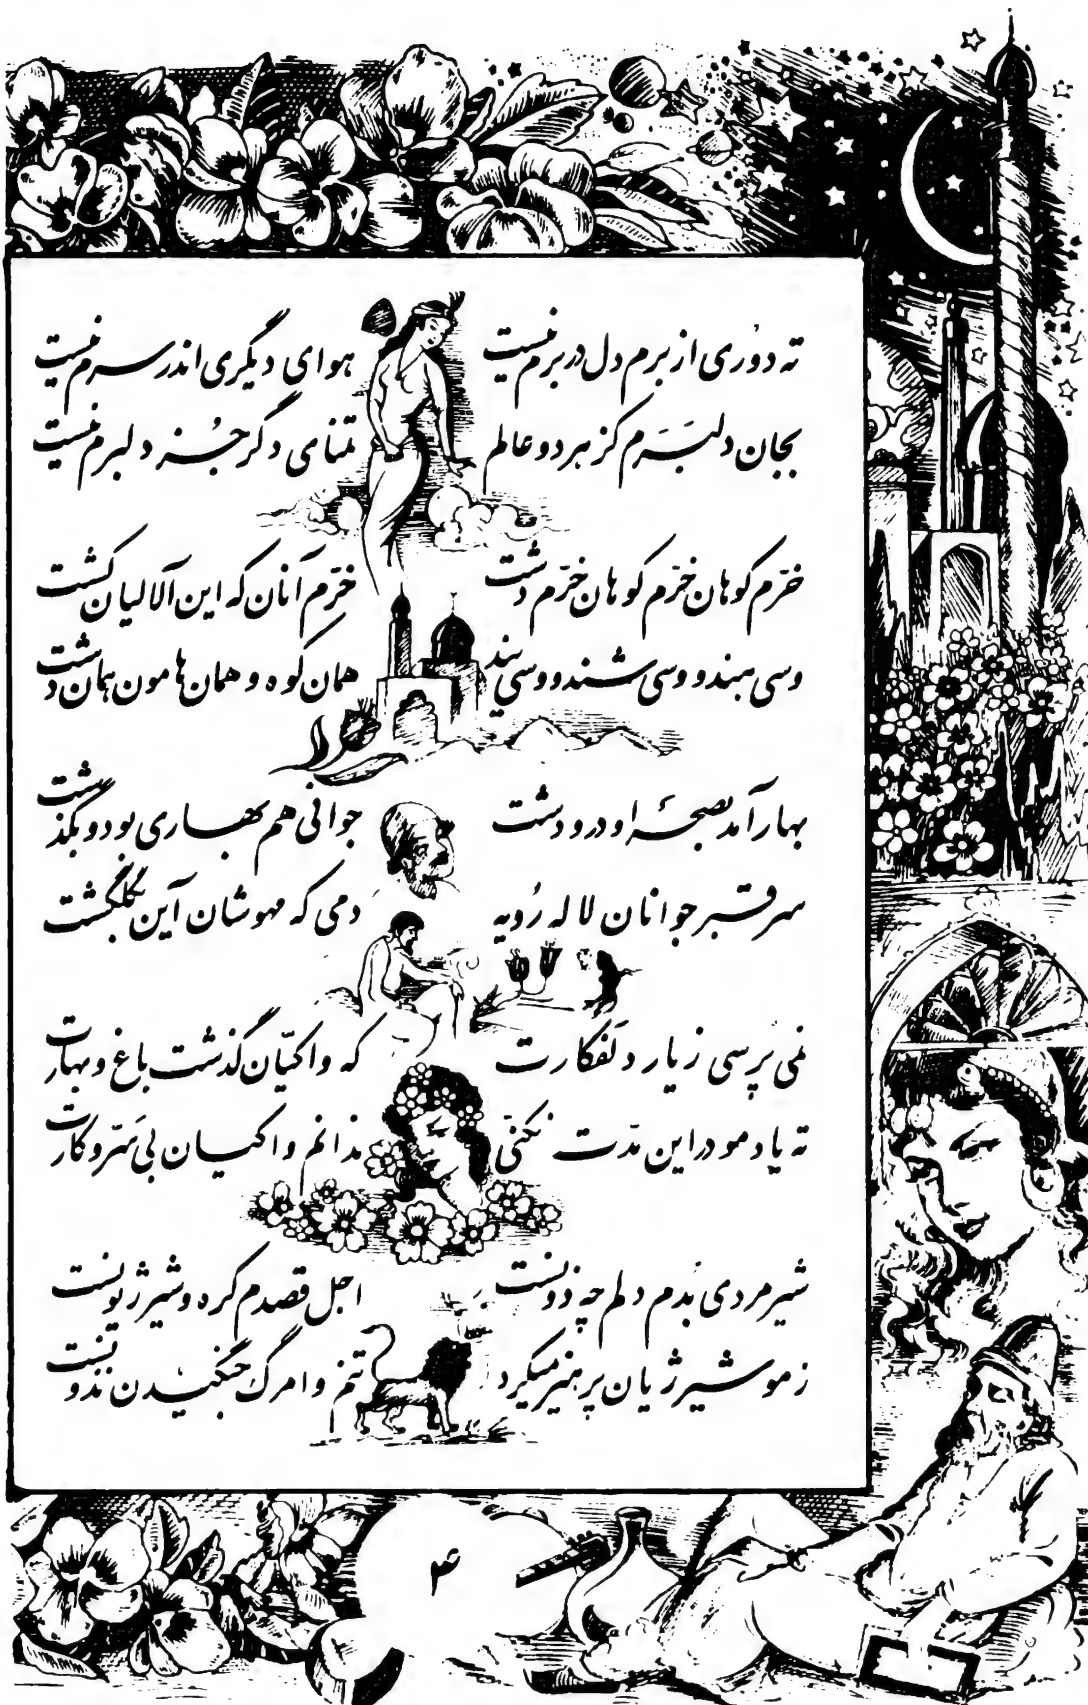 ته دُوری از برم دل در برم نیست هوای دیگری اندر سرم نیست
بجان دلبَرَم کز هر دو عالم تمنای دگر جُز دلبرم نیست
خرّم کوهان خرّم کوهان خرّم دشت خرّم آنان که این آلالیان کشت
وسی هبند و وسی شُند و وسی یند همان کوه و همان هامون همان دشت
بهار آمد بصحرا و در و دشت جوانی هم بهاری بود و بگذشت
سر قبر جوانان لاله رُویه دمی که مهوشان آین گلگشت
نمی پرسی ز یار دلَفکارت که واکیّان گذشت باغ و بهارت
ته یاد مو در این مدّت نکنّی مذانم واکیان بی سَرّوکارت
شیر مردی بُدم دلم چه ذونست اجل قصدم کره و شیر ژیونست
ز مو شیر ژیان پرهیز میکرد تنم وا مرگ جنگیدن نذونست
۴